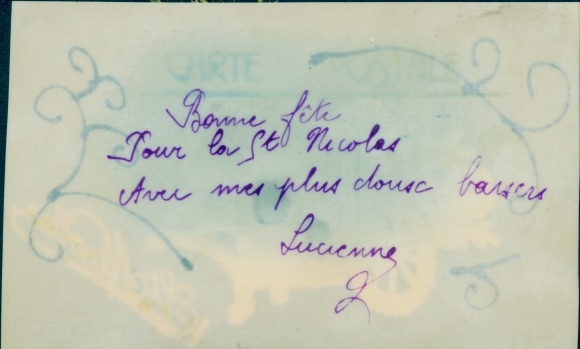 CARTE POSTALE
Bonne fête
Pour la St Nicolas
Avec mes plus dousc baisers
Lucienne